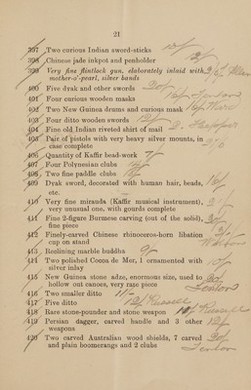 21
397 Two curious Indian sword-sticks 10/-
398 Chinese jade inkpot and penholder
399 Very fine flintlock gun, elaborately inlaid with
mother-o'-pearl, silver bands
400 Five dyak and other swords 20/-
401 Four curious wooden masks
402 Two New Guinea drums and curious mask
403 Four ditto wooden swords 12/-
404 Fine old Indian riveted shirt of mail
405 Pair of pistols with very heavy silver mounts, in
case complete
406 Quantity of Kaffir bead-work 7/-
407 Four Polynesian clubs
408 Two fine paddle clubs
409 Dyak sword, decorated with human hair, beads,
etc.
410 Very fine miranda (Kaffir musical instrument),
very unusual one, with gourds complete
411 Fine 2-figure Burmese carving (out of the solid),
fine
412 Finely-carved Chinese rhinoceros-horn libation
cup on stand
413 Reclining marble buddha 9/-
414 Two polished Cocoa de Mer, 1 ornamented with
silver inlay
415 New Guinea stone adze, enormous size, used to
hollow out canoes, very rare piece
416 Two smaller ditto 11/-
417 Five ditto 12/- Russell
418 Rare stone-pounder and stone weapon 10/- Russell
419 Persian dagger, carved handle and 3 other
weapons
420 Two carved Australian wood shields, 7 carved
and plain boomerangs and 2 clubs